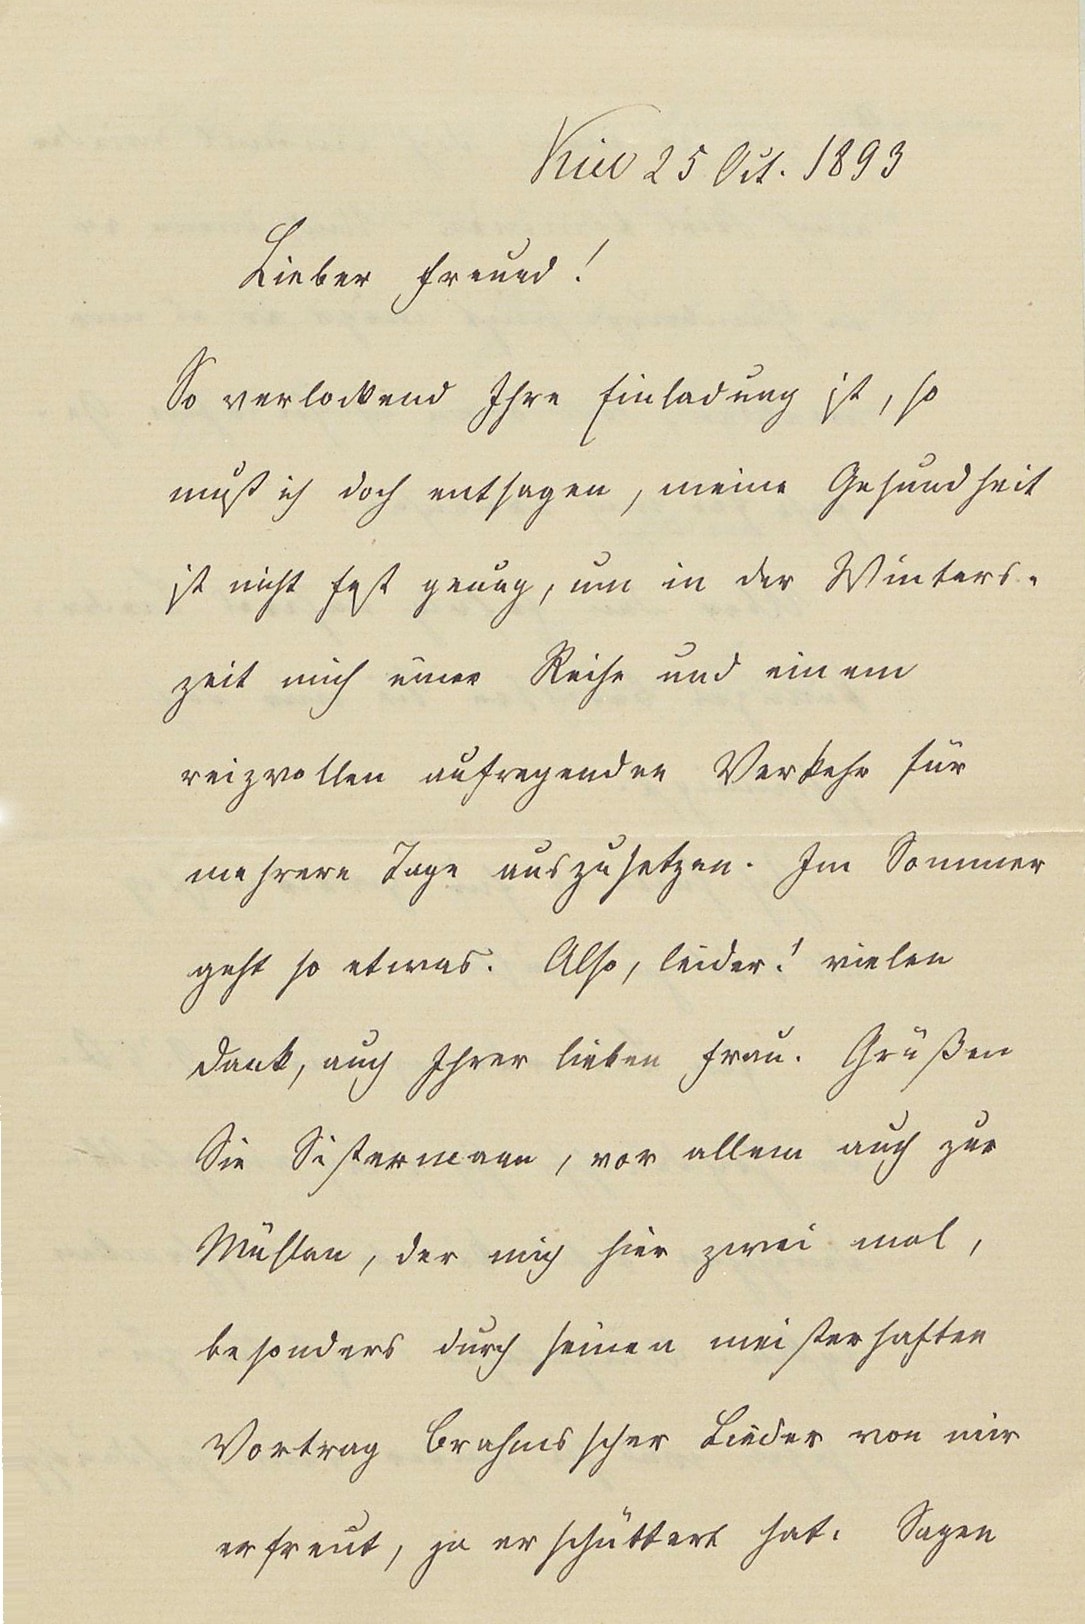 Kiel 25 Oct. 1893
Lieber Freund!
So verlockend Ihre Einladung ist, so
muß ich doch entsagen, meine Gesundheit
ist nicht fest genug, um in der Winters-
zeit mich einer Reise und einem
reizvollen aufregenden Verkehr für
mehrere Tage auszusetzen. Im Sommer
geht so etwas. Also, leider! vielen
Dank, auch Ihrer lieben Frau. Grüßen
Sie Sistermann, vor allem auch zur
, der mich hier zwei mal,
besonders durch seinen meisterhaften
Vortrag Brahmsscher Lieder von mir
erfreut, ja erschüttert hat. Sagen